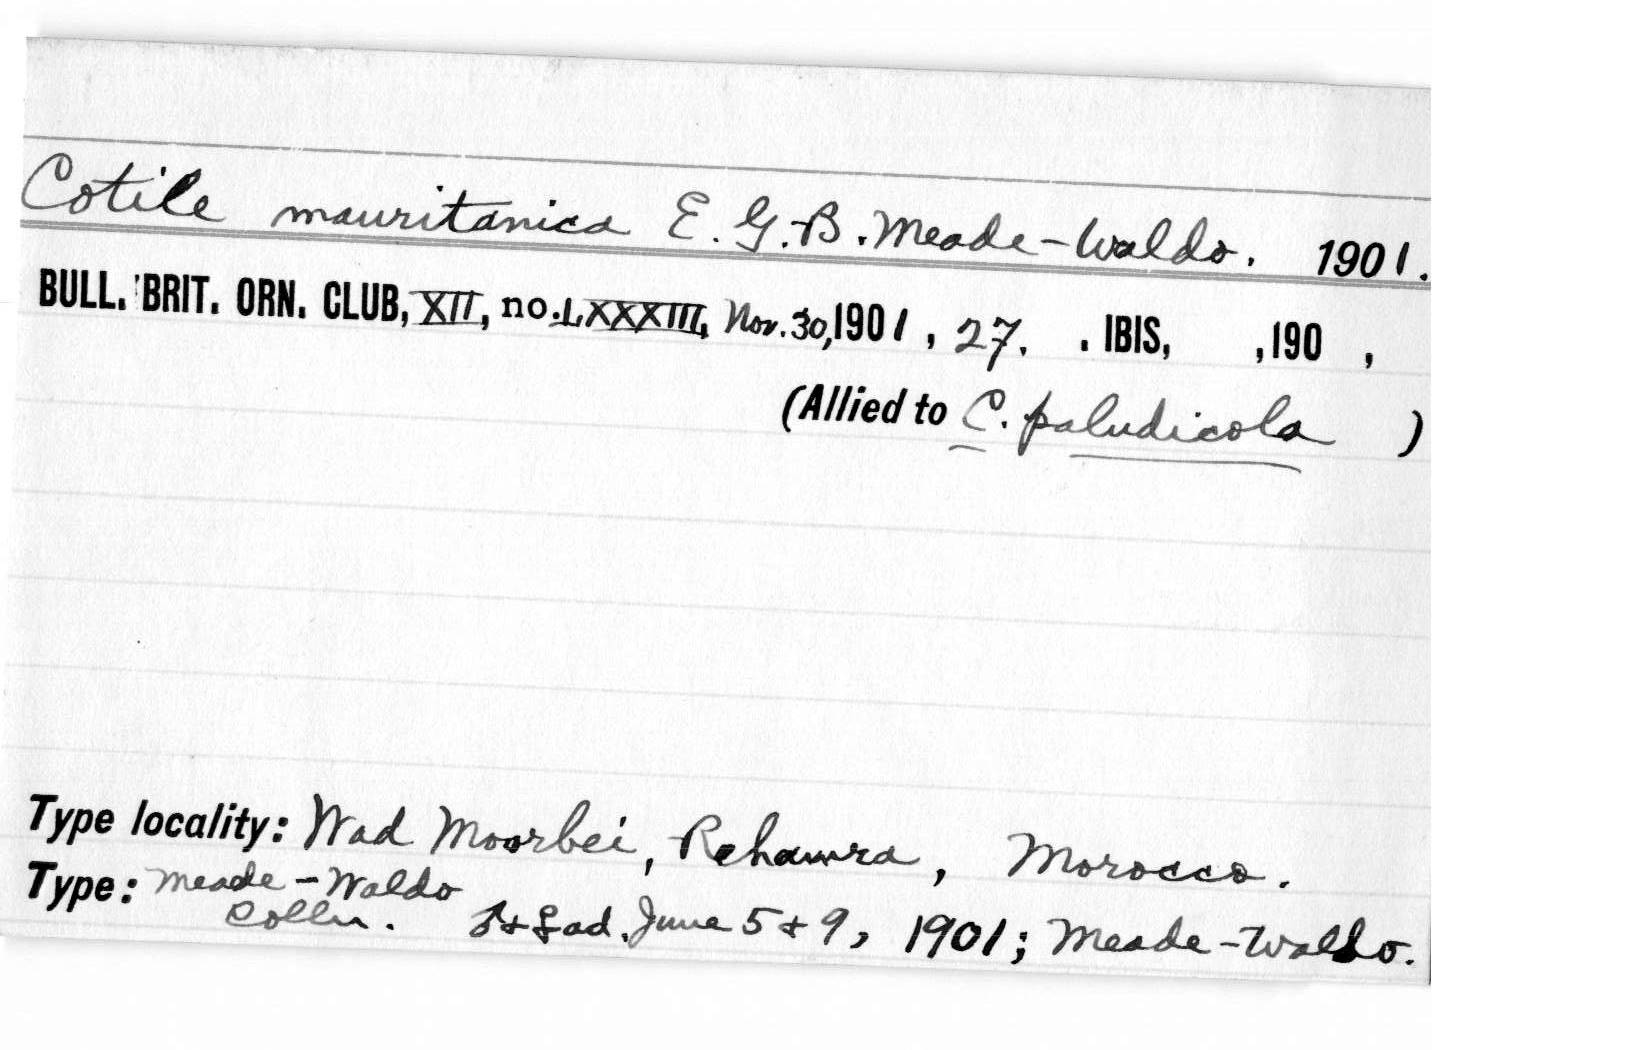 Cotile mauritanica E. G. B. Meade-Waldo. 1901.
BULL. BRIT. ORN. CLUB, XII, no. LXXXIII, Nov. 30, 1901, 27. . IBIS, ,190 ,
(Allied to C. paludicola )
Type locality: Wad Moorbei, Rehamra, Morocco.
Type: Meade-Waldo
Colln. ♂ + ♀ ad. June 5 + 9, 1901; Meade-Waldo.